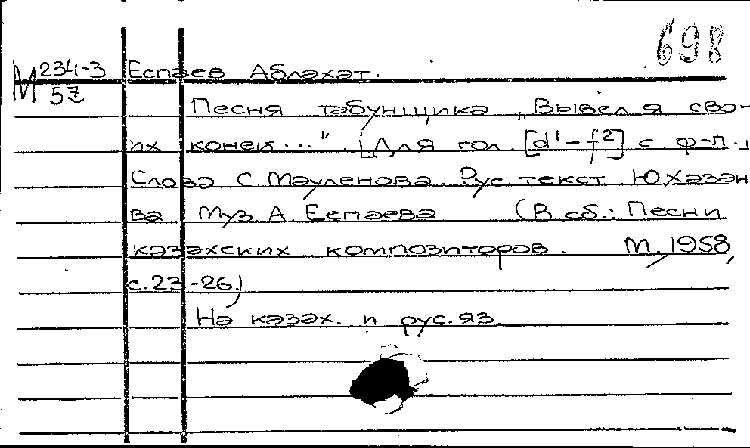 698
М 234-3 Еспаев Аблахат.
57
Песня табунщика „Вывел я сво-
их коней...". [Для гол. [d¹-f²] с ф-п.]
Слова С. Мауленова. Рус. текст Ю. Хазан
ва Муз. А. Еспаева (В сб.: Песни
казахских композиторов. М., 1958,
с. 23-26.)
На казах. и рус. яз.